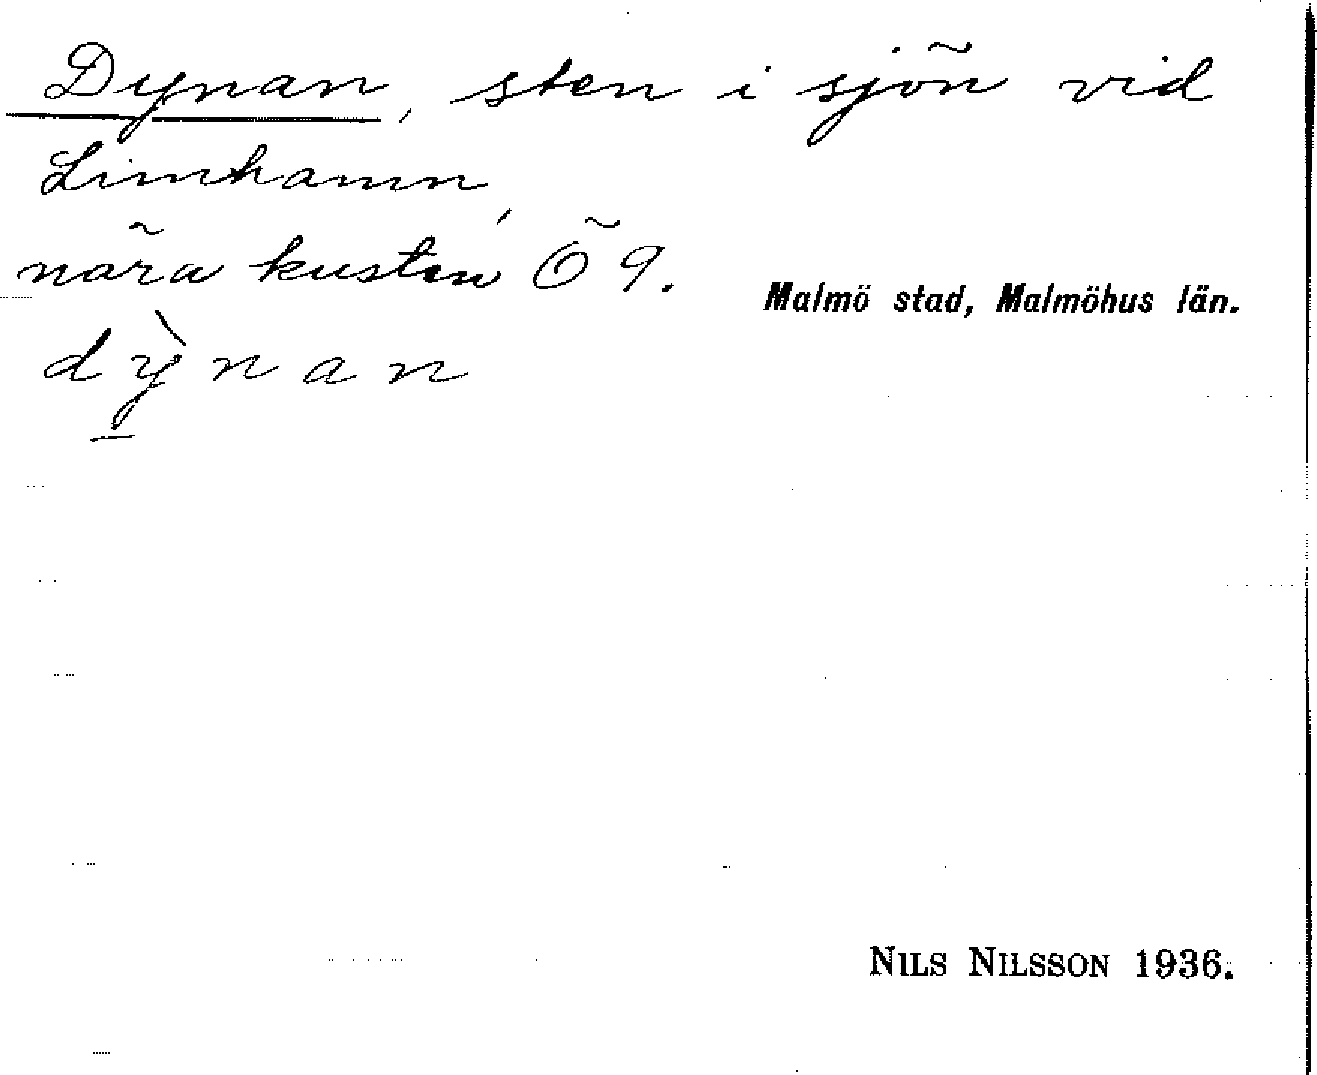 Dynan, sten i sjön vid
Limhamn,
nära kusten Ö 9.
Malmö stad, Malmöhus län.
dỳnan
NILS NILSSON 1936.